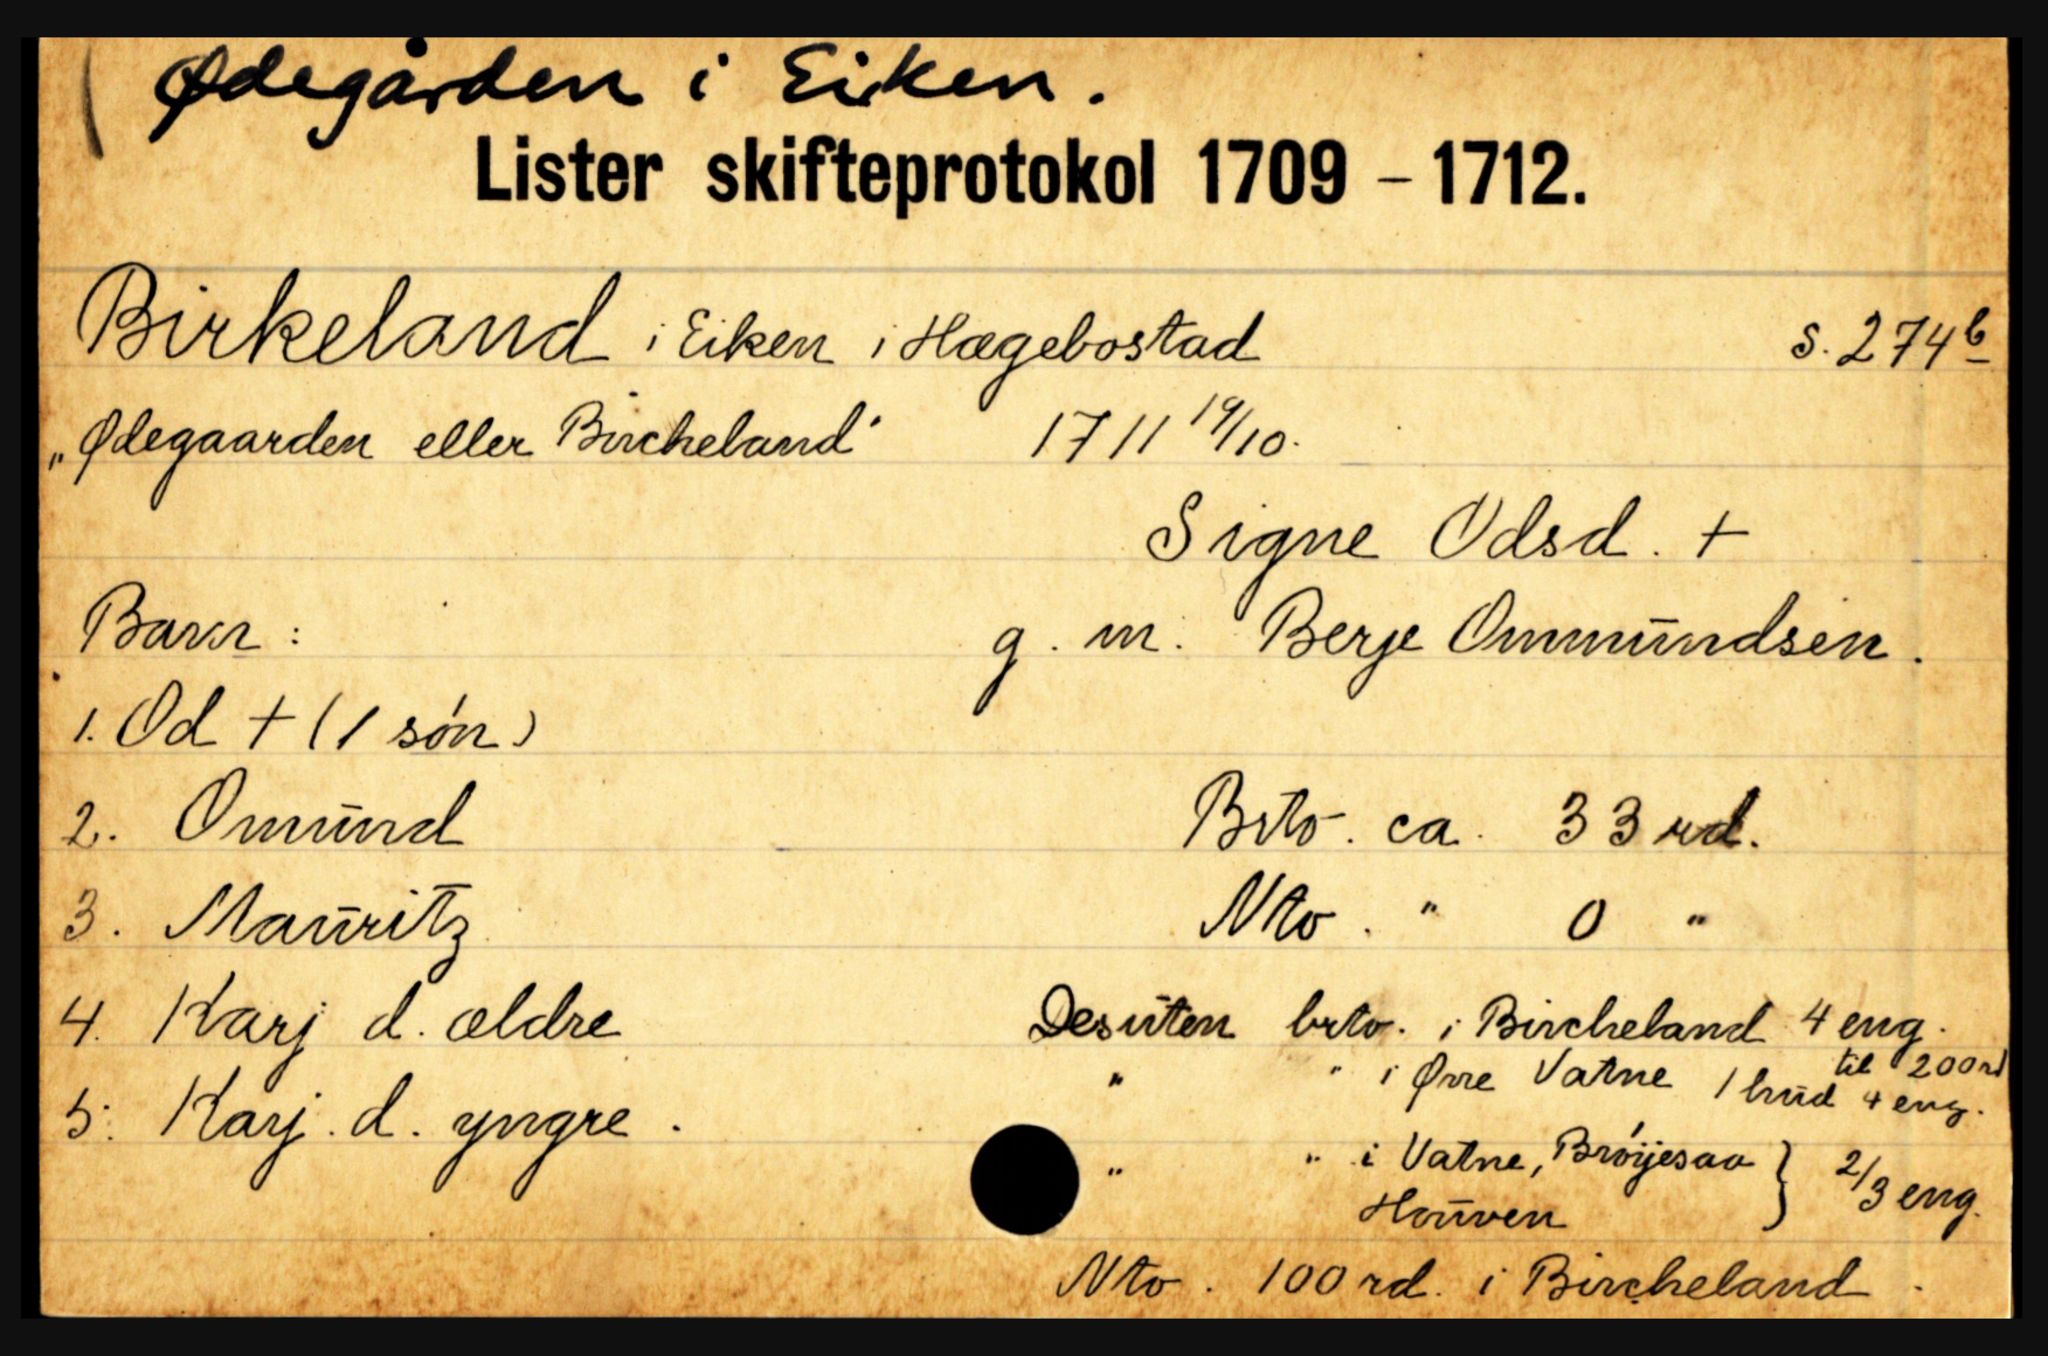 Ødegården i Eiken.
Lister skifteprotokol 1709 – 1712.
Birkeland i Eiken i Hægebostad s. 274b
„Ødegaarden eller Bircheland" 1711 19/10.
Signe Odsd. +
Barn: g. m. Berje Ommundsen.
1. Od + (1 søn)
2. Omund Brto. ca. 33 rd.
3. Mauritz Nto. " 0 "
4. Karj d. ældre Desuten brto. i Bircheland 4 eng.
til 200 rd
" " i Øvre Vatne 1 hud 4 eng.
5. Karj d. yngre.
" " i Vatne, Brøijesaa } 2/3 eng.
Houven
Nto. 100 rd. i Bircheland.